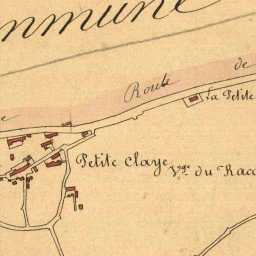 ommune
Route de
La Petite
Petite Claye
Vge. du Racc